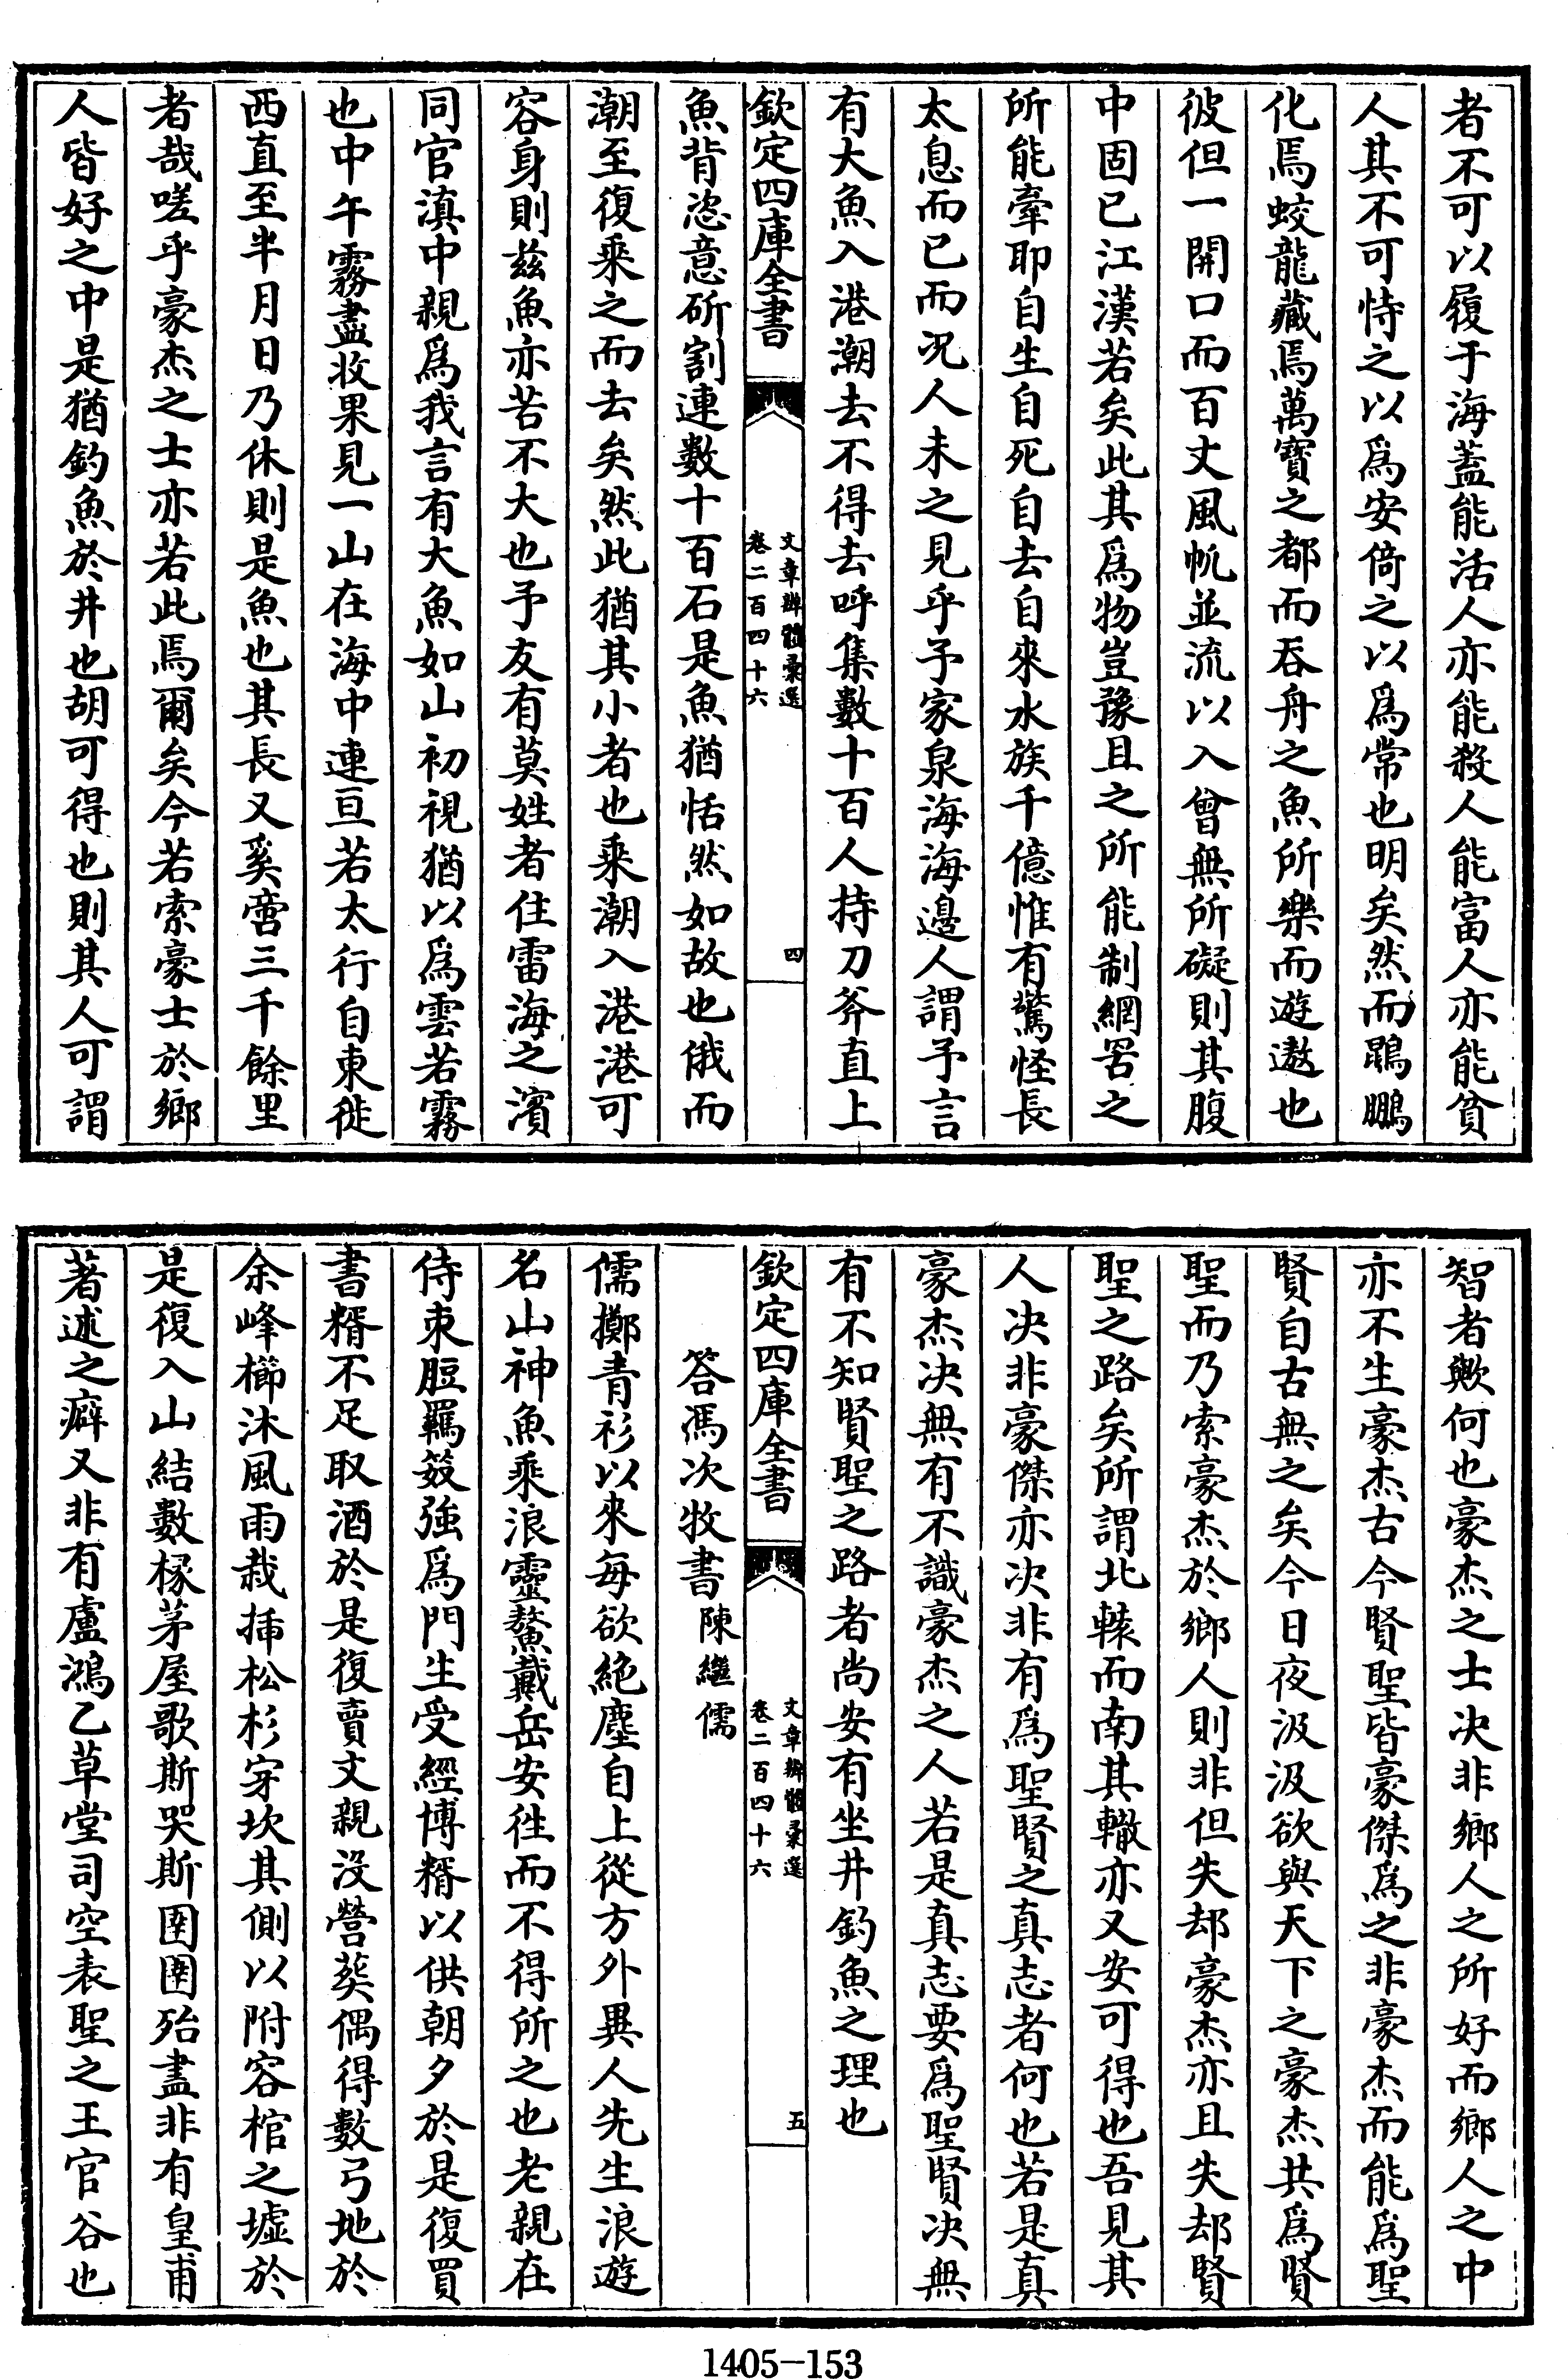 者不可以履于海蓋能活人亦能殺人能富人亦能貧
人其不可恃之以爲安倚之以爲常也明矣然而鵾鵬
化焉蛟龍藏焉萬寶之都而吞舟之魚所樂而遊遨也
彼但一開口而百丈風帆並流以入曾無所礙則其腹
中固已江漢若矣此其爲物豈豫且之所能制網罟之
所能牽耶自生自死自去自來水族千億惟有驚怪長
太息而已而况人未之見乎予家泉海海邊人謂予言
有大魚入港潮去不得去呼集數十百人持刀斧直上
欽定四庫全書
文章辨體彙選
卷二百四十六
四
魚背恣意斫割連數十百石是魚猶恬然如故也俄而
潮至復乘之而去矣然此猶其小者也乘潮入港港可
容身則兹魚亦苦不大也予友有莫姓者住雷海之濱
同官滇中親爲我言有大魚如山初視猶以爲雲若霧
也中午霧盡收果見一山在海中連亘若太行自東徙
西直至半月日乃休則是魚也其長又奚啻三千餘里
者哉嗟乎豪杰之士亦若此焉爾矣今若索豪士於鄉
人皆好之中是猶釣魚於井也胡可得也則其人可謂
智者歟何也豪杰之士决非鄉人之所好而鄉人之中
亦不生豪杰古今賢聖皆豪傑爲之非豪杰而能爲聖
賢自古無之矣今日夜汲汲欲與天下之豪杰共爲賢
聖而乃索豪杰於鄉人則非但失却豪杰亦且失却賢
聖之路矣所謂北轅而南其轍亦又安可得也吾見其
人决非豪傑亦决非有爲聖賢之真志者何也若是真
豪杰决無有不識豪杰之人若是真志要爲聖賢决無
有不知賢聖之路者尚安有坐井釣魚之理也
欽定四庫全書
文章辨體彙選
卷二百四十六
五
答馮次牧書陳繼儒
儒擲青衫以來每欲絶塵自上從方外異人先生浪遊
名山神魚乘浪靈鰲戴岳安徃而不得所之也老親在
侍束脰羈笯強爲門生受經博糈以供朝夕於是復買
書糈不足取酒於是復賣文親没營葬偶得數弓地於
余峰櫛沐風雨栽揷松杉穿坎其側以附容棺之墟於
是復入山結數椽茅屋歌斯哭斯圉圉殆盡非有皇甫
著述之癖又非有盧鴻乙草堂司空表聖之王官谷也
1405—153